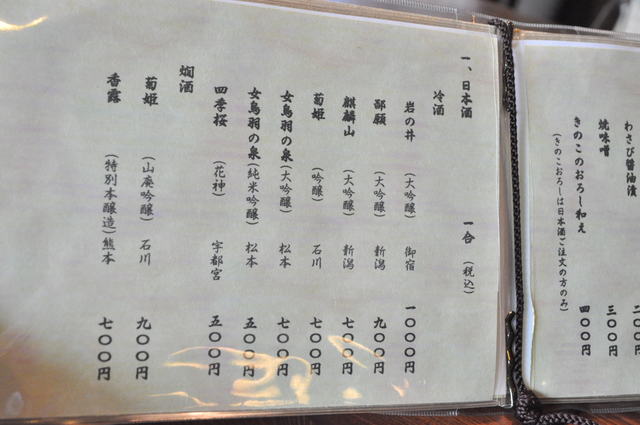 わさび醤油漬
焼味噌 三〇〇円
きのこのおろし和え 四〇〇円
(きのこおろしは日本酒ご注文の方のみ)
一、日本酒 一合 (税込)
冷酒
岩の井 (大吟醸) 御宿 一〇〇〇円
鄙願 (大吟醸) 新潟 九〇〇円
麒麟山 (大吟醸) 新潟 七〇〇円
菊姫 (吟醸) 石川 七〇〇円
女鳥羽の泉 (大吟醸) 松本 七〇〇円
女鳥羽の泉 (純米吟醸) 松本 五〇〇円
四季桜 (花神) 宇都宮 五〇〇円
燗酒
菊姫 (山廃吟醸) 石川 九〇〇円
香露 (特別本醸造) 熊本 七〇〇円